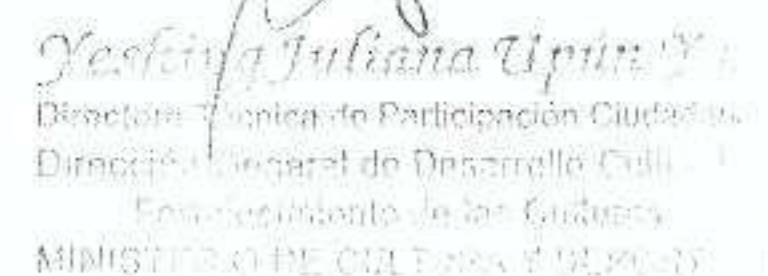 Juliana Upún Y
Directora Técnica de Participación Ciudadana
Dirección General de Desarrollo Cultural
Fortalecimiento de las Culturas
MINISTERIO DE CULTURA Y DEPORTES